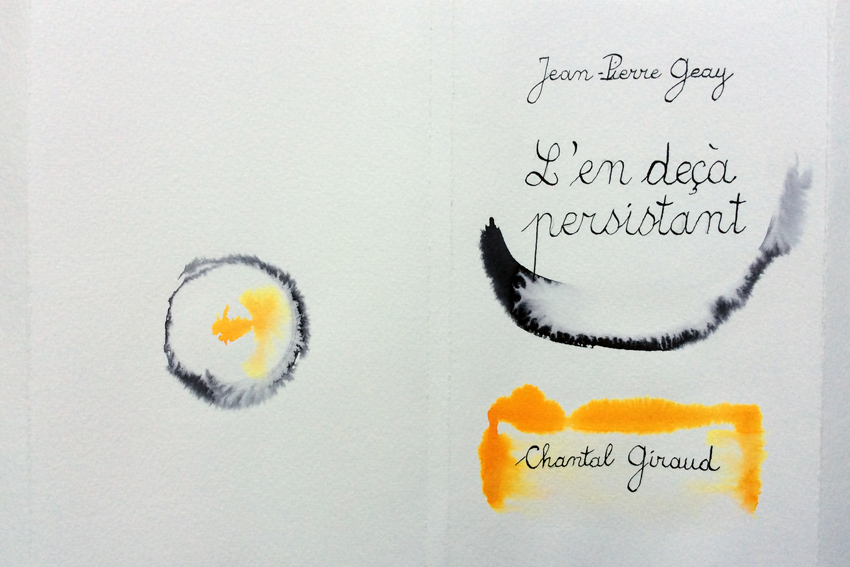 Jean-Pierre Geay
L'en deçà
persistant
Chantal Giraud